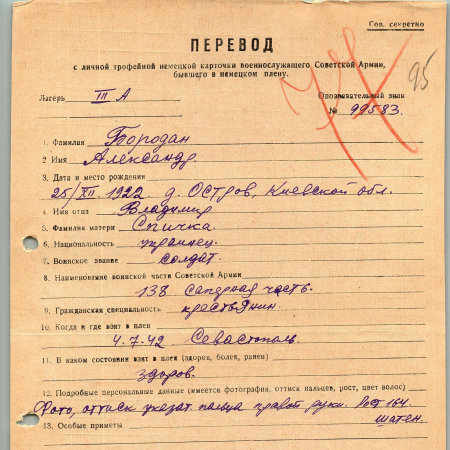 Сов. секретно
ПЕРЕВОД
с личной трофейной немецкой карточки военнослужащего Советской Армии,
бывшего в немецком плену.
95
Лагерь III А
Опознавательный знак
№ 99583.
1. Фамилия Бородан
2 Имя Александр
3. Дата и место рождения
25/XII. 1922 д. Остров, Киевской обл.
4. Имя отца Владимир
5. Фамилия матери Спичка.
6. Национальность украинец.
7. Воинское звание солдат.
8. Наименование воинской части Советской Армии
138 саперная часть.
9. Гражданская специальность крестьянин.
10. Когда и где взят в плен
4.7.42 Севастополь
11. В каком состоянии взят в плен (здоров, болен, ранен)
здоров.
12. Подробные персональные данные (имеется фотография, оттиск пальцев, рост, цвет волос)
Фото, оттиск указат. пальца правой руки. Рост 164.
шатен.
13. Особые приметы